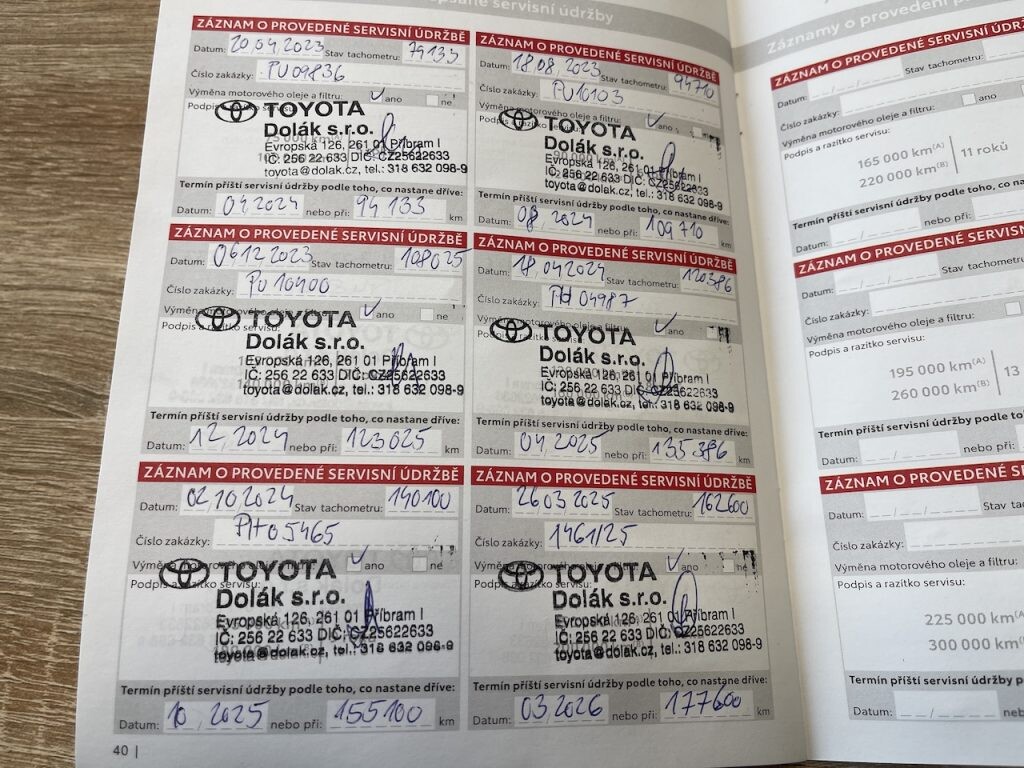 psané servisní údržby
ZÁZNAM O PROVEDENÉ SERVISNÍ ÚDRŽBĚ
Datum: 20.04.2023 Stav tachometru: 79133
Číslo zakázky: PU09836
Výměna motorového oleje a filtru: ✓ ano ne
Podpis a razítko servisu:
TOYOTA
Dolák s.r.o.
Evropská 126, 261 01 Příbram I
IČ: 256 22 633 DIČ: CZ25622633
toyota@dolak.cz, tel.: 318 632 098-9
Termín příští servisní údržby podle toho, co nastane dříve:
Datum: 04 2024 nebo při: 94 133 km
ZÁZNAM O PROVEDENÉ SERVISNÍ ÚDRŽBĚ
Datum: 18.08.2023 Stav tachometru: 94710
Číslo zakázky: PU10103
Výměna motorového oleje a filtru: ✓ ano
TOYOTA
Dolák s.r.o.
Evropská 126, 261 01 Příbram I
IČ: 256 22 633 DIČ: CZ25622633
toyota@dolak.cz, tel.: 318 632 098-9
Termín příští servisní údržby podle toho, co nastane dříve:
Datum: 08 2024 nebo při: 109 710 km
ZÁZNAM O PROVEDENÉ SERVISNÍ ÚDRŽBĚ
Datum: 06.12.2023 Stav tachometru: 108025
Číslo zakázky: PU10400
Výměna motorového oleje a filtru: ✓ ano ne
Podpis a razítko servisu:
TOYOTA
Dolák s.r.o.
Evropská 126, 261 01 Příbram I
IČ: 256 22 633 DIČ: CZ25622633
toyota@dolak.cz, tel.: 318 632 098-9
Termín příští servisní údržby podle toho, co nastane dříve:
Datum: 12.2024 nebo při: 123025 km
ZÁZNAM O PROVEDENÉ SERVISNÍ ÚDRŽBĚ
Datum: 18.04.2024 Stav tachometru: 120386
Číslo zakázky: PH 04987
Výměna motorového oleje a filtru: ✓ ano
TOYOTA
Dolák s.r.o.
Evropská 126, 261 01 Příbram I
IČ: 256 22 633 DIČ: CZ25622633
toyota@dolak.cz, tel.: 318 632 098-9
Termín příští servisní údržby podle toho, co nastane dříve:
Datum: 04.2025 nebo při: 135386 km
ZÁZNAM O PROVEDENÉ SERVISNÍ ÚDRŽBĚ
Datum: 02.10.2024 Stav tachometru: 140100
Číslo zakázky: PH05465
✓ ano ne
Podpis a razítko servisu:
TOYOTA
Dolák s.r.o.
Evropská 126, 261 01 Příbram I
IČ: 256 22 633 DIČ: CZ25622633
toyota@dolak.cz, tel.: 318 632 098-9
Termín příští servisní údržby podle toho, co nastane dříve:
Datum: 10.2025 nebo při: 155100 km
ZÁZNAM O PROVEDENÉ SERVISNÍ ÚDRŽBĚ
Datum: 26.03.2025 Stav tachometru: 162600
Číslo zakázky: 1461/25
✓ ano ne
TOYOTA
Dolák s.r.o.
Evropská 126, 261 01 Příbram I
IČ: 256 22 633 DIČ: CZ25622633
toyota@dolak.cz, tel.: 318 632 098-9
Termín příští servisní údržby podle toho, co nastane dříve:
Datum: 03.2026 nebo při: 177600 km
40 |
Záznamy o provedení
ZÁZNAM O PROVEDENÉ SERVISNÍ
Datum: Stav tachometru:
Číslo zakázky:
Výměna motorového oleje a filtru: ano
Podpis a razítko servisu:
165 000 km(A)
220 000 km(B)
11 roků
Termín příští servisní údržby podle toho, co nastane
Datum: nebo při:
ZÁZNAM O PROVEDENÉ SERVISNÍ
Datum: Stav tachometru:
Číslo zakázky:
Výměna motorového oleje a filtru:
Podpis a razítko servisu:
195 000 km(A)
260 000 km(B)
13
Termín příští servisní údržby podle toho, co
Datum: nebo při:
ZÁZNAM O PROVEDENÉ SERVISNÍ
Datum: Stav
Číslo zakázky:
Výměna motorového oleje a filtru:
Podpis a razítko servisu:
225 000 km(A)
300 000 km
Termín příští servisní údržby podle toho,
Datum: